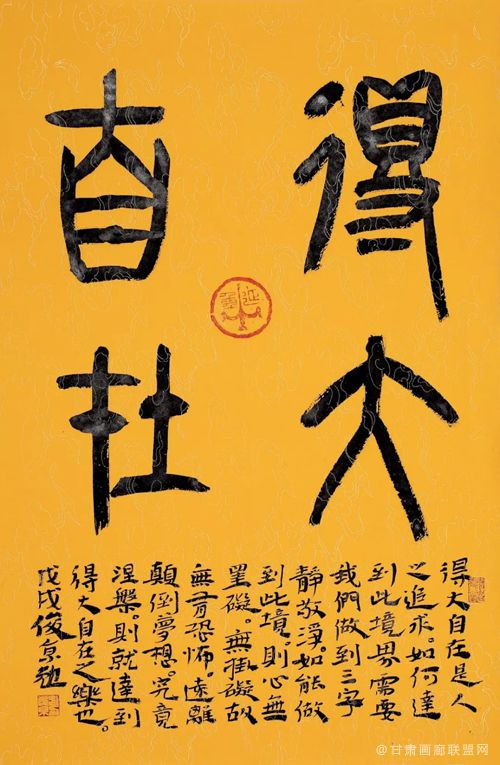 得大
自在
得大自在是人
之追求。如何達
到此境界需要
我們做到三字
靜敬淨。如能做
到此境。則心無
罣礙。無掛礙故
無有恐怖。遠離
顛倒夢想。究竟
涅槃。則就達到
得大自在之樂也。
戊戌俊京
@甘肃画廊联盟网